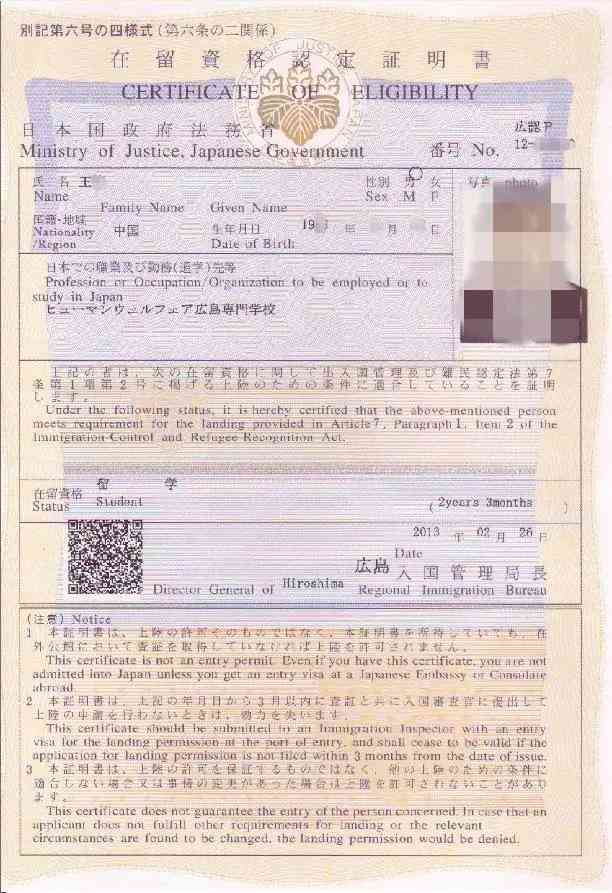 別記第六号の四様式(第六条の二関係)
在留資格認定証明書
CERTIFICATE OF ELIGIBILITY
日本国政府法務省
Ministry of Justice, Japanese Government
広認P
番号 No. 12-
氏名 王
Name
Family Name Given Name
性別 男 女
Sex M F
写真 photo
国籍・地域 中国
Nationality
/Region
生年月日 19 年 月 日
Date of Birth
日本での職業及び勤務(通学)先等
Profession or Occupation/Organization to be employed or to
study in Japan
ヒューマンウェルフェア広島専門学校
上記の者は、次の在留資格に関して出入国管理及び難民認定法第7
条第1項第2号に掲げる上陸のための条件に適合していることを証明
します。
Under the following status, it is hereby certified that the above-mentioned person
meets requirement for the landing provided in Article 7, Paragraph 1, Item 2 of the
Immigration-Control and Refugee Recognition Act.
在留資格 留学
Status Student
(2years 3months)
2013 年 02 月 26 日
Date
広島 入国管理局長
Director General of Hiroshima Regional Immigration Bureau
(注意) Notice
1 本証明書は、上陸の許可そのものではなく、本証明書を所持していても、在
外公館において査証を取得していなければ上陸を許可されません。
This certificate is not an entry permit. Even if you have this certificate, you are not
admitted into Japan unless you get an entry visa at a Japanese Embassy or Consulate
abroad.
2 本証明書は、上記の年月日から3月以内に査証と共に入国審査官に提出して
上陸の申請を行わないときは、効力を失います。
This certificate should be submitted to an Immigration Inspector with an entry
visa for the landing permission at the port of entry, and shall cease to be valid if the
application for landing permission is not filed within 3 months from the date of issue.
3 本証明書は、上陸の許可を保証するものではなく、他の上陸のための条件に
適合しない場合又は事情の変更があった場合は上陸を許可されないことがあり
ます。
This certificate does not guarantee the entry of the person concerned. In case that an
applicant does not fulfill other requirements for landing or the relevant
circumstances are found to be changed, the landing permission would be denied.